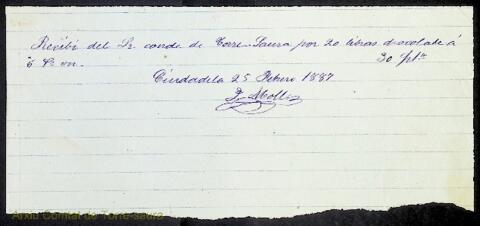 Recibí del Sr. conde de Torre-Saura por 20 libras chocolate á
6 Rs. vn. 30 ptas
Ciudadela 25 Febrero 1887
Arxiu Comtal de Torre-saura